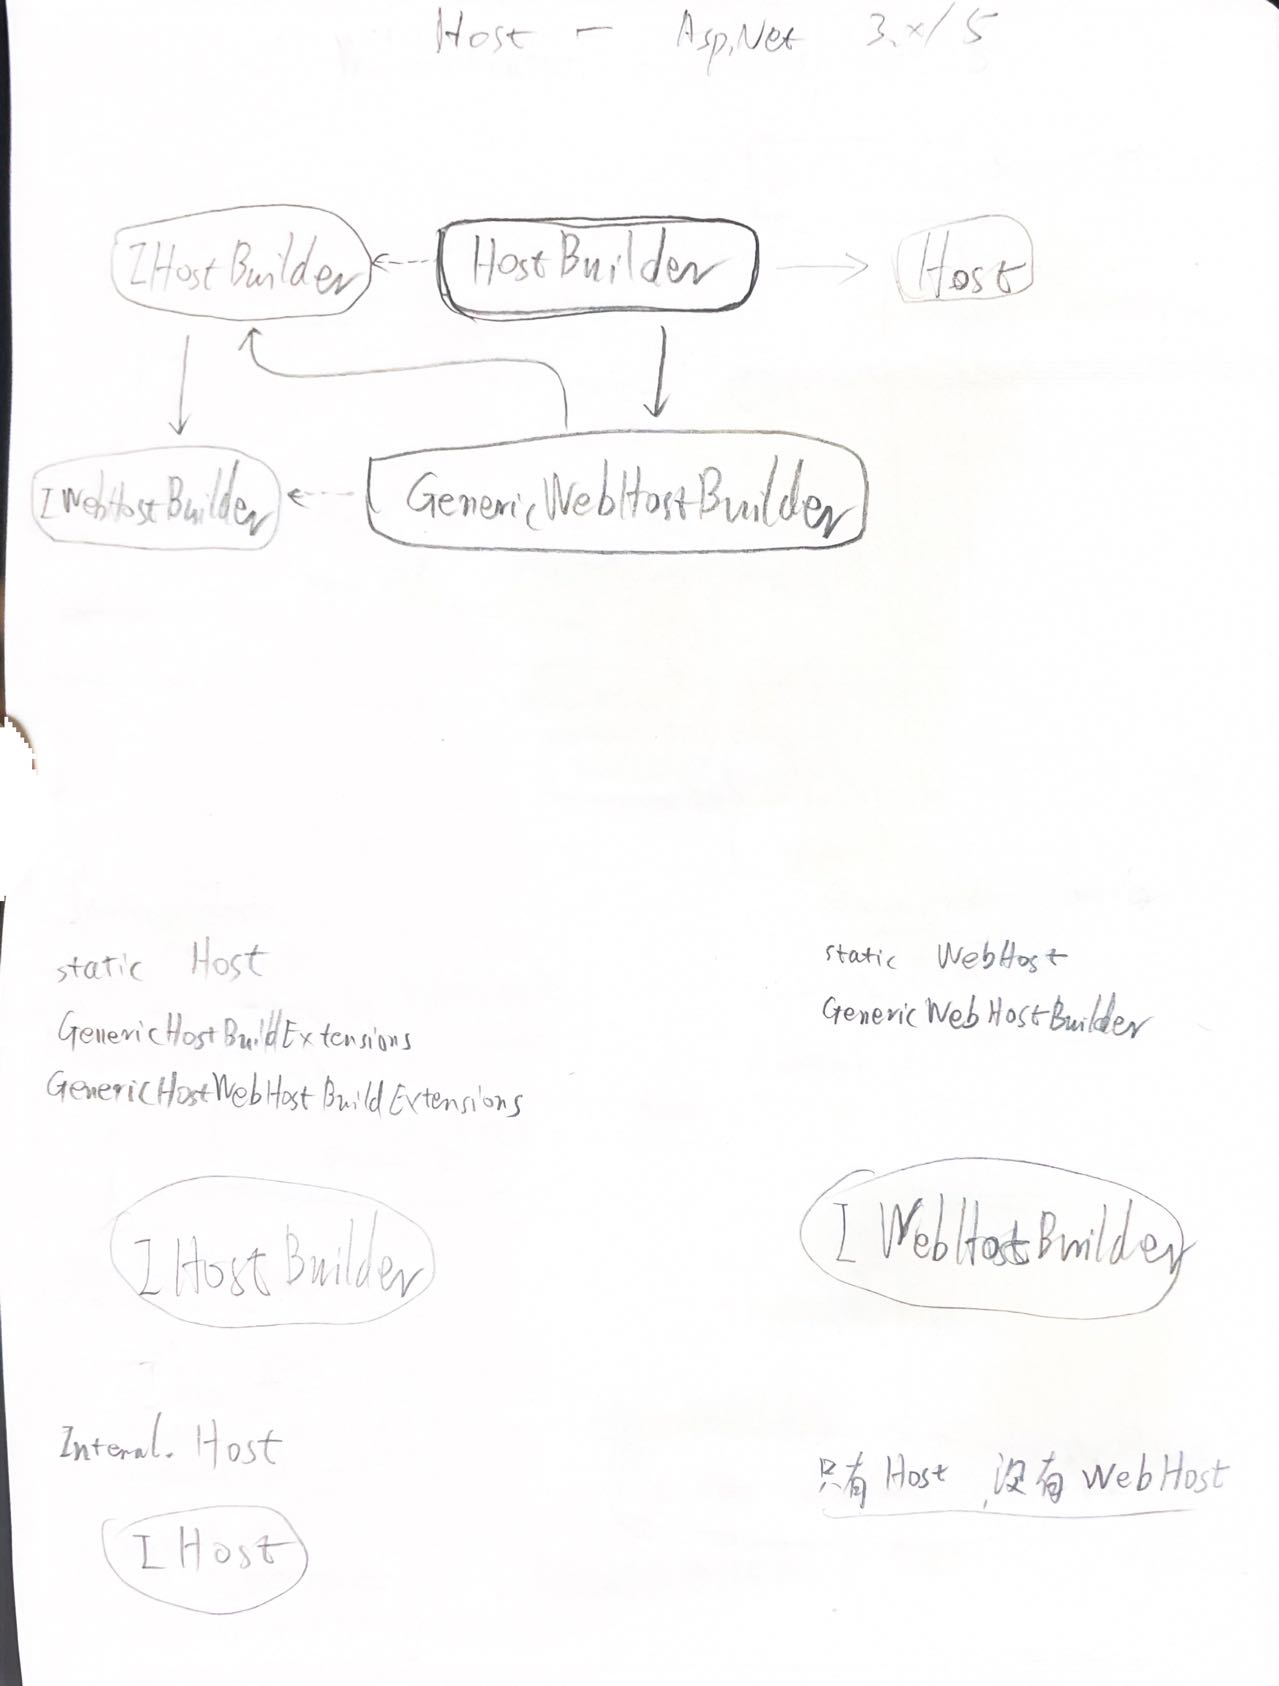 Host — Asp.Net 3.x/5
IHostBuilder
HostBuilder
Host
IWebHostBuilder
GenericWebHostBuilder
static Host
GenericHostBuildExtensions
GenericHostWebHostBuildExtensions
IHostBuilder
Internal. Host
IHost
static WebHost
GenericWebHostBuilder
IWebHostBuilder
只有Host,没有WebHost